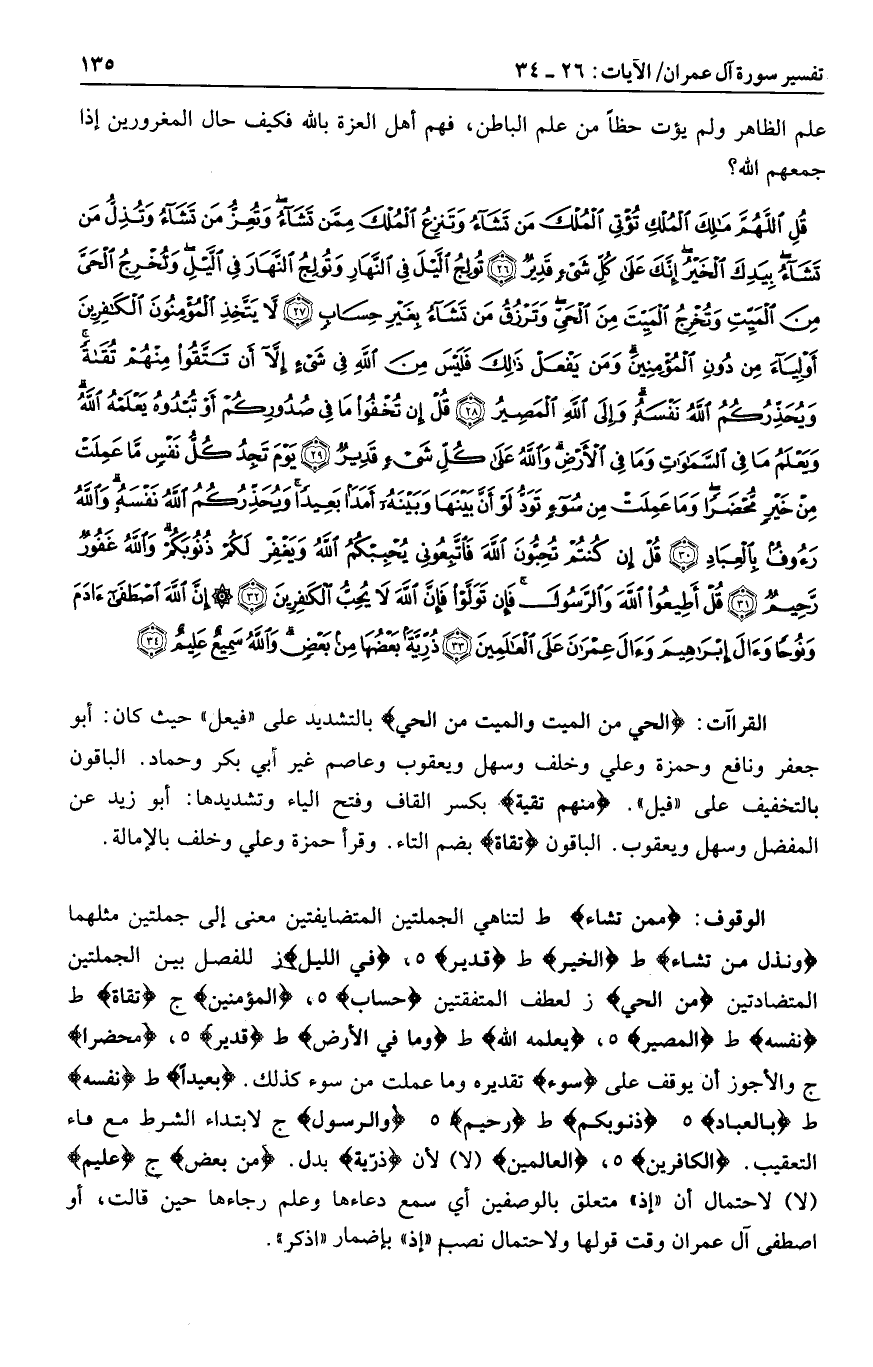 تفسير سورة آل عمران/ الآيات: ٢٦ ـ ٣٤ ١٣٥
علم الظاهر ولم يؤت حظاً من علم الباطن، فهم أهل العزة بالله فكيف حال المغرورين إذا
جمعهم الله؟
قُلِ ٱللَّهُمَّ مَٰلِكَ ٱلْمُلْكِ تُؤْتِى ٱلْمُلْكَ مَن تَشَآءُ وَتَنزِعُ ٱلْمُلْكَ مِمَّن تَشَآءُ ۖ وَتُعِزُّ مَن تَشَآءُ وَتُذِلُّ مَن
تَشَآءُ ۖ بِيَدِكَ ٱلْخَيْرُ ۖ إِنَّكَ عَلَىٰ كُلِّ شَىْءٍ قَدِيرٌ ﴿٢٦﴾ تُولِجُ ٱلَّيْلَ فِى ٱلنَّهَارِ وَتُولِجُ ٱلنَّهَارَ فِى ٱلَّيْلِ ۖ وَتُخْرِجُ ٱلْحَىَّ
مِنَ ٱلْمَيِّتِ وَتُخْرِجُ ٱلْمَيِّتَ مِنَ ٱلْحَىِّ ۖ وَتَرْزُقُ مَن تَشَآءُ بِغَيْرِ حِسَابٍ ﴿٢٧﴾ لَا يَتَّخِذِ ٱلْمُؤْمِنُونَ ٱلْكَٰفِرِينَ
أَوْلِيَآءَ مِن دُونِ ٱلْمُؤْمِنِينَ ۖ وَمَن يَفْعَلْ ذَٰلِكَ فَلَيْسَ مِنَ ٱللَّهِ فِى شَىْءٍ إِلَّآ أَن تَتَّقُوا۟ مِنْهُمْ تُقَىٰةً ۗ
وَيُحَذِّرُكُمُ ٱللَّهُ نَفْسَهُۥ ۗ وَإِلَى ٱللَّهِ ٱلْمَصِيرُ ﴿٢٨﴾ قُلْ إِن تُخْفُوا۟ مَا فِى صُدُورِكُمْ أَوْ تُبْدُوهُ يَعْلَمْهُ ٱللَّهُ ۗ
وَيَعْلَمُ مَا فِى ٱلسَّمَٰوَٰتِ وَمَا فِى ٱلْأَرْضِ ۗ وَٱللَّهُ عَلَىٰ كُلِّ شَىْءٍ قَدِيرٌ ﴿٢٩﴾ يَوْمَ تَجِدُ كُلُّ نَفْسٍ مَّا عَمِلَتْ
مِنْ خَيْرٍ مُّحْضَرًا ۖ وَمَا عَمِلَتْ مِن سُوٓءٍ تَوَدُّ لَوْ أَنَّ بَيْنَهَا وَبَيْنَهُۥٓ أَمَدًۢا بَعِيدًا ۗ وَيُحَذِّرُكُمُ ٱللَّهُ نَفْسَهُۥ ۗ وَٱللَّهُ
رَءُوفٌۢ بِٱلْعِبَادِ ﴿٣٠﴾ قُلْ إِن كُنتُمْ تُحِبُّونَ ٱللَّهَ فَٱتَّبِعُونِى يُحْبِبْكُمُ ٱللَّهُ وَيَغْفِرْ لَكُمْ ذُنُوبَكُمْ ۗ وَٱللَّهُ غَفُورٌ
رَّحِيمٌ ﴿٣١﴾ قُلْ أَطِيعُوا۟ ٱللَّهَ وَٱلرَّسُولَ ۖ فَإِن تَوَلَّوْا۟ فَإِنَّ ٱللَّهَ لَا يُحِبُّ ٱلْكَٰفِرِينَ ﴿٣٢﴾ ۞ إِنَّ ٱللَّهَ ٱصْطَفَىٰٓ ءَادَمَ
وَنُوحًا وَءَالَ إِبْرَٰهِيمَ وَءَالَ عِمْرَٰنَ عَلَى ٱلْعَٰلَمِينَ ﴿٣٣﴾ ذُرِّيَّةًۢ بَعْضُهَا مِنۢ بَعْضٍ ۗ وَٱللَّهُ سَمِيعٌ عَلِيمٌ ﴿٣٤﴾
القراآت: ﴿الحي من الميت والميت من الحي﴾ بالتشديد على «فيعل» حيث كان: أبو
جعفر ونافع وحمزة وعلي وخلف وسهل ويعقوب وعاصم غير أبي بكر وحماد. الباقون
بالتخفيف على «فيل». ﴿منهم تقية﴾ بكسر القاف وفتح الياء وتشديدها: أبو زيد عن
المفضل وسهل ويعقوب. الباقون ﴿تقاة﴾ بضم التاء. وقرأ حمزة وعلي وخلف بالإمالة.
الوقوف: ﴿ممن تشاء﴾ ط لتناهي الجملتين المتضايفتين معنى إلى جملتين مثلهما
﴿ونذل من تشاء﴾ ط ﴿الخير﴾ ط ﴿قدير﴾ ٥، ﴿في الليل﴾ ز للفصل بين الجملتين
المتضادتين ﴿من الحي﴾ ز لعطف المتفقتين ﴿حساب﴾ ٥، ﴿المؤمنين﴾ ج ﴿تقاة﴾ ط
﴿نفسه﴾ ط ﴿المصير﴾ ٥، ﴿يعلمه الله﴾ ط ﴿وما في الأرض﴾ ط ﴿قدير﴾ ٥، ﴿محضرا﴾
ج والأجوز أن يوقف على ﴿سوء﴾ تقديره وما عملت من سوء كذلك. ﴿بعيداً﴾ ط ﴿نفسه﴾
ط ﴿بالعباد﴾ ٥ ﴿ذنوبكم﴾ ط ﴿رحيم﴾ ٥ ﴿والرسول﴾ ج لابتداء الشرط مع فاء
التعقيب. ﴿الكافرين﴾ ٥، ﴿العالمين﴾ (لا) لأن ﴿ذرّية﴾ بدل. ﴿من بعض﴾ ج ﴿عليم﴾
(لا) لاحتمال أن «إذ» متعلق بالوصفين أي سمع دعاءها وعلم رجاءها حين قالت، أو
اصطفى آل عمران وقت قولها ولاحتمال نصب «إذ» بإضمار «اذكر».